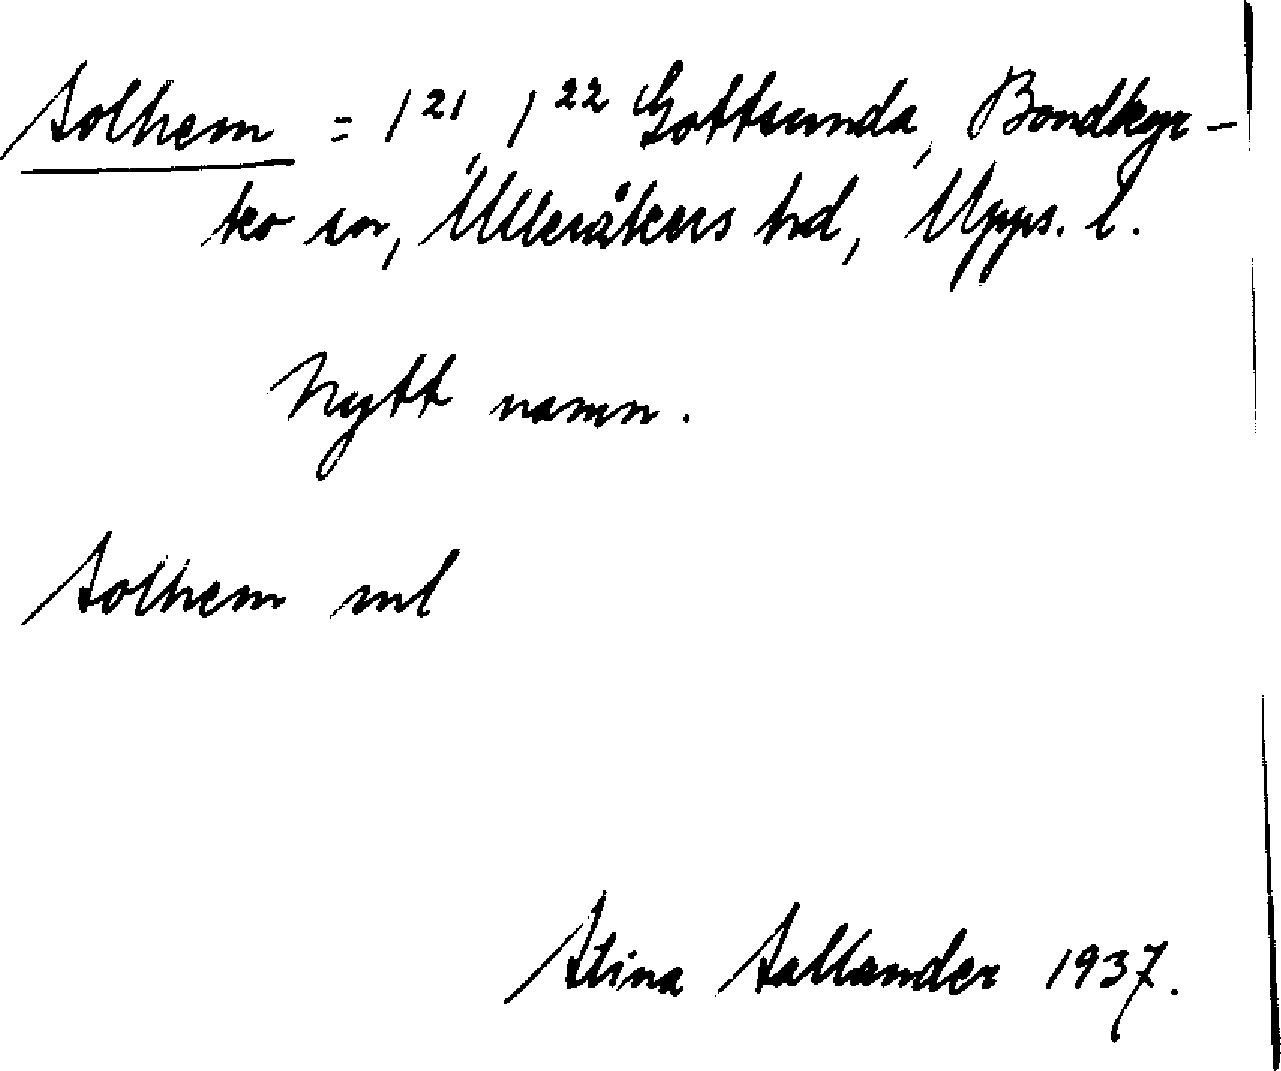 Solhem = 1²¹, 1²² Gottsunda, Bondkyr-
ko sn, Ulleråkers hd, Upps. l.
Nytt namn.
Solhem ml
Stina Sallander 1937.